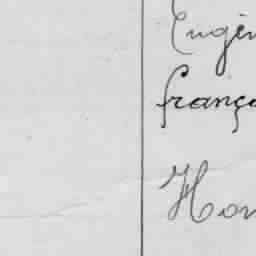 Eugén
frança
Hon